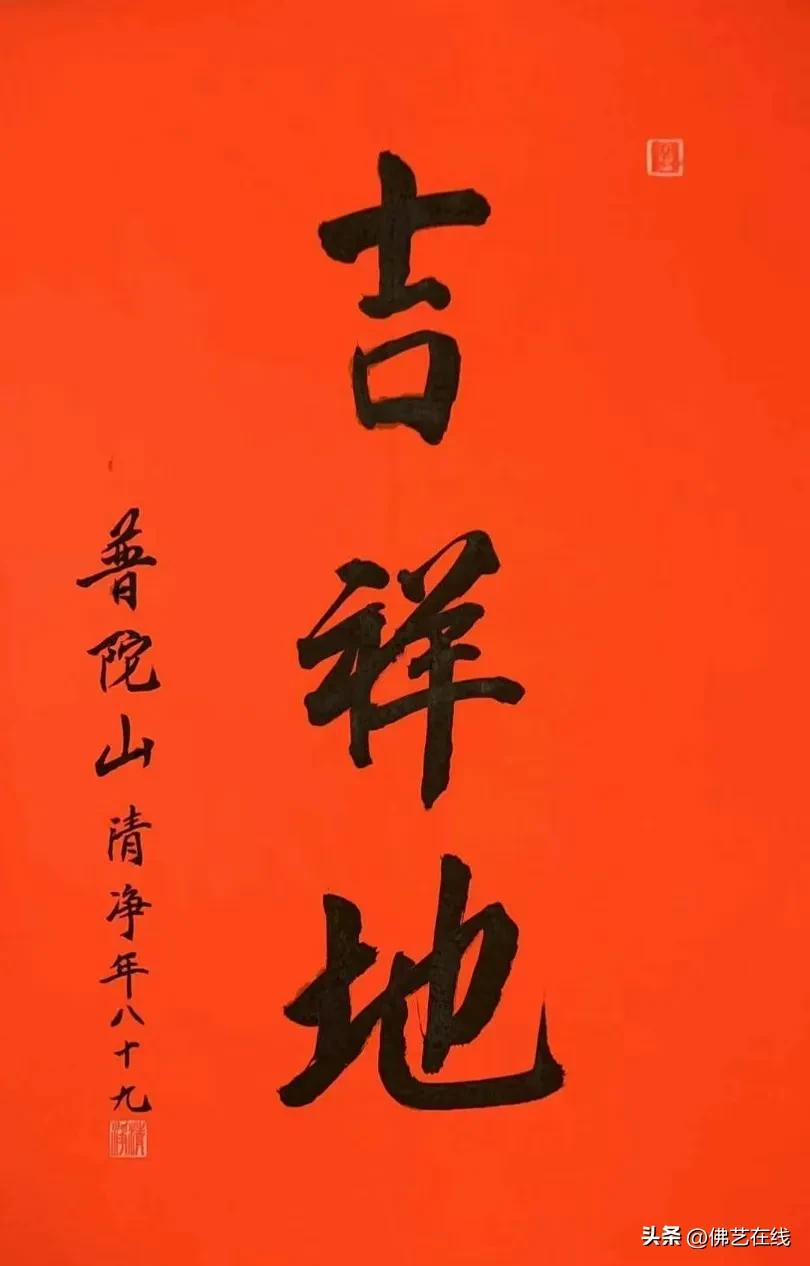 吉祥地
普陀山清净年八十九
清净
头条 @佛艺在线